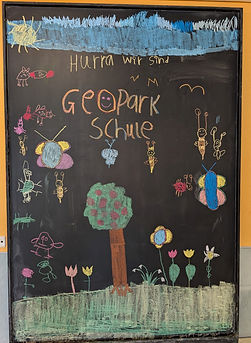 Hurra wir sind
GEOPARK
Schule